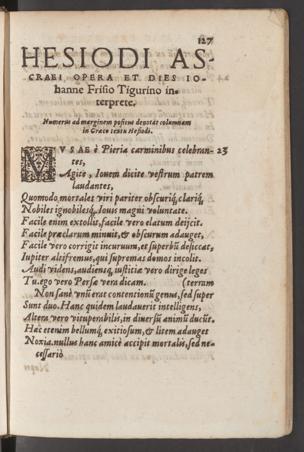 127
HESIODI AS-
CRAEI OPERA ET DIES IO-
hanne Frisio Tigurino in-
terprete.
Numerus ad marginem positus denotat columnam
in Græco textu Hesiodi.
MVSAE è Pieria carminibus celebran- 23
tes,
Agite, Iouem dicite vestrum patrem
laudantes,
Quomodo mortales viri pariter obscuriq́, clariq́,
Nobiles ignobilesq́, Iouis magni voluntate.
Facile enim extollit, facile vero elatum deijcit.
Facile præclarum minuit, & obscurum adauget,
Facile vero corrigit incuruum, et superbũ desiccat,
Iupiter altifremus, qui supremas domos incolit.
Audi videns, audiensq́, iustitia vero dirige leges
Tu. ego vero Persæ vera dicam. (terram
Non sanè vnũ erat contentionũ genus, sed super
Sunt duo. Hanc quidem laudauerit intelligens,
Altera vero vituperabilis, in diuersũ animũ ducũt.
Hæc etenim bellumq́, exitiosum, & litem adauget
Noxia. nullus hanc amicè accipit mortalis, sed ne-
cessariò